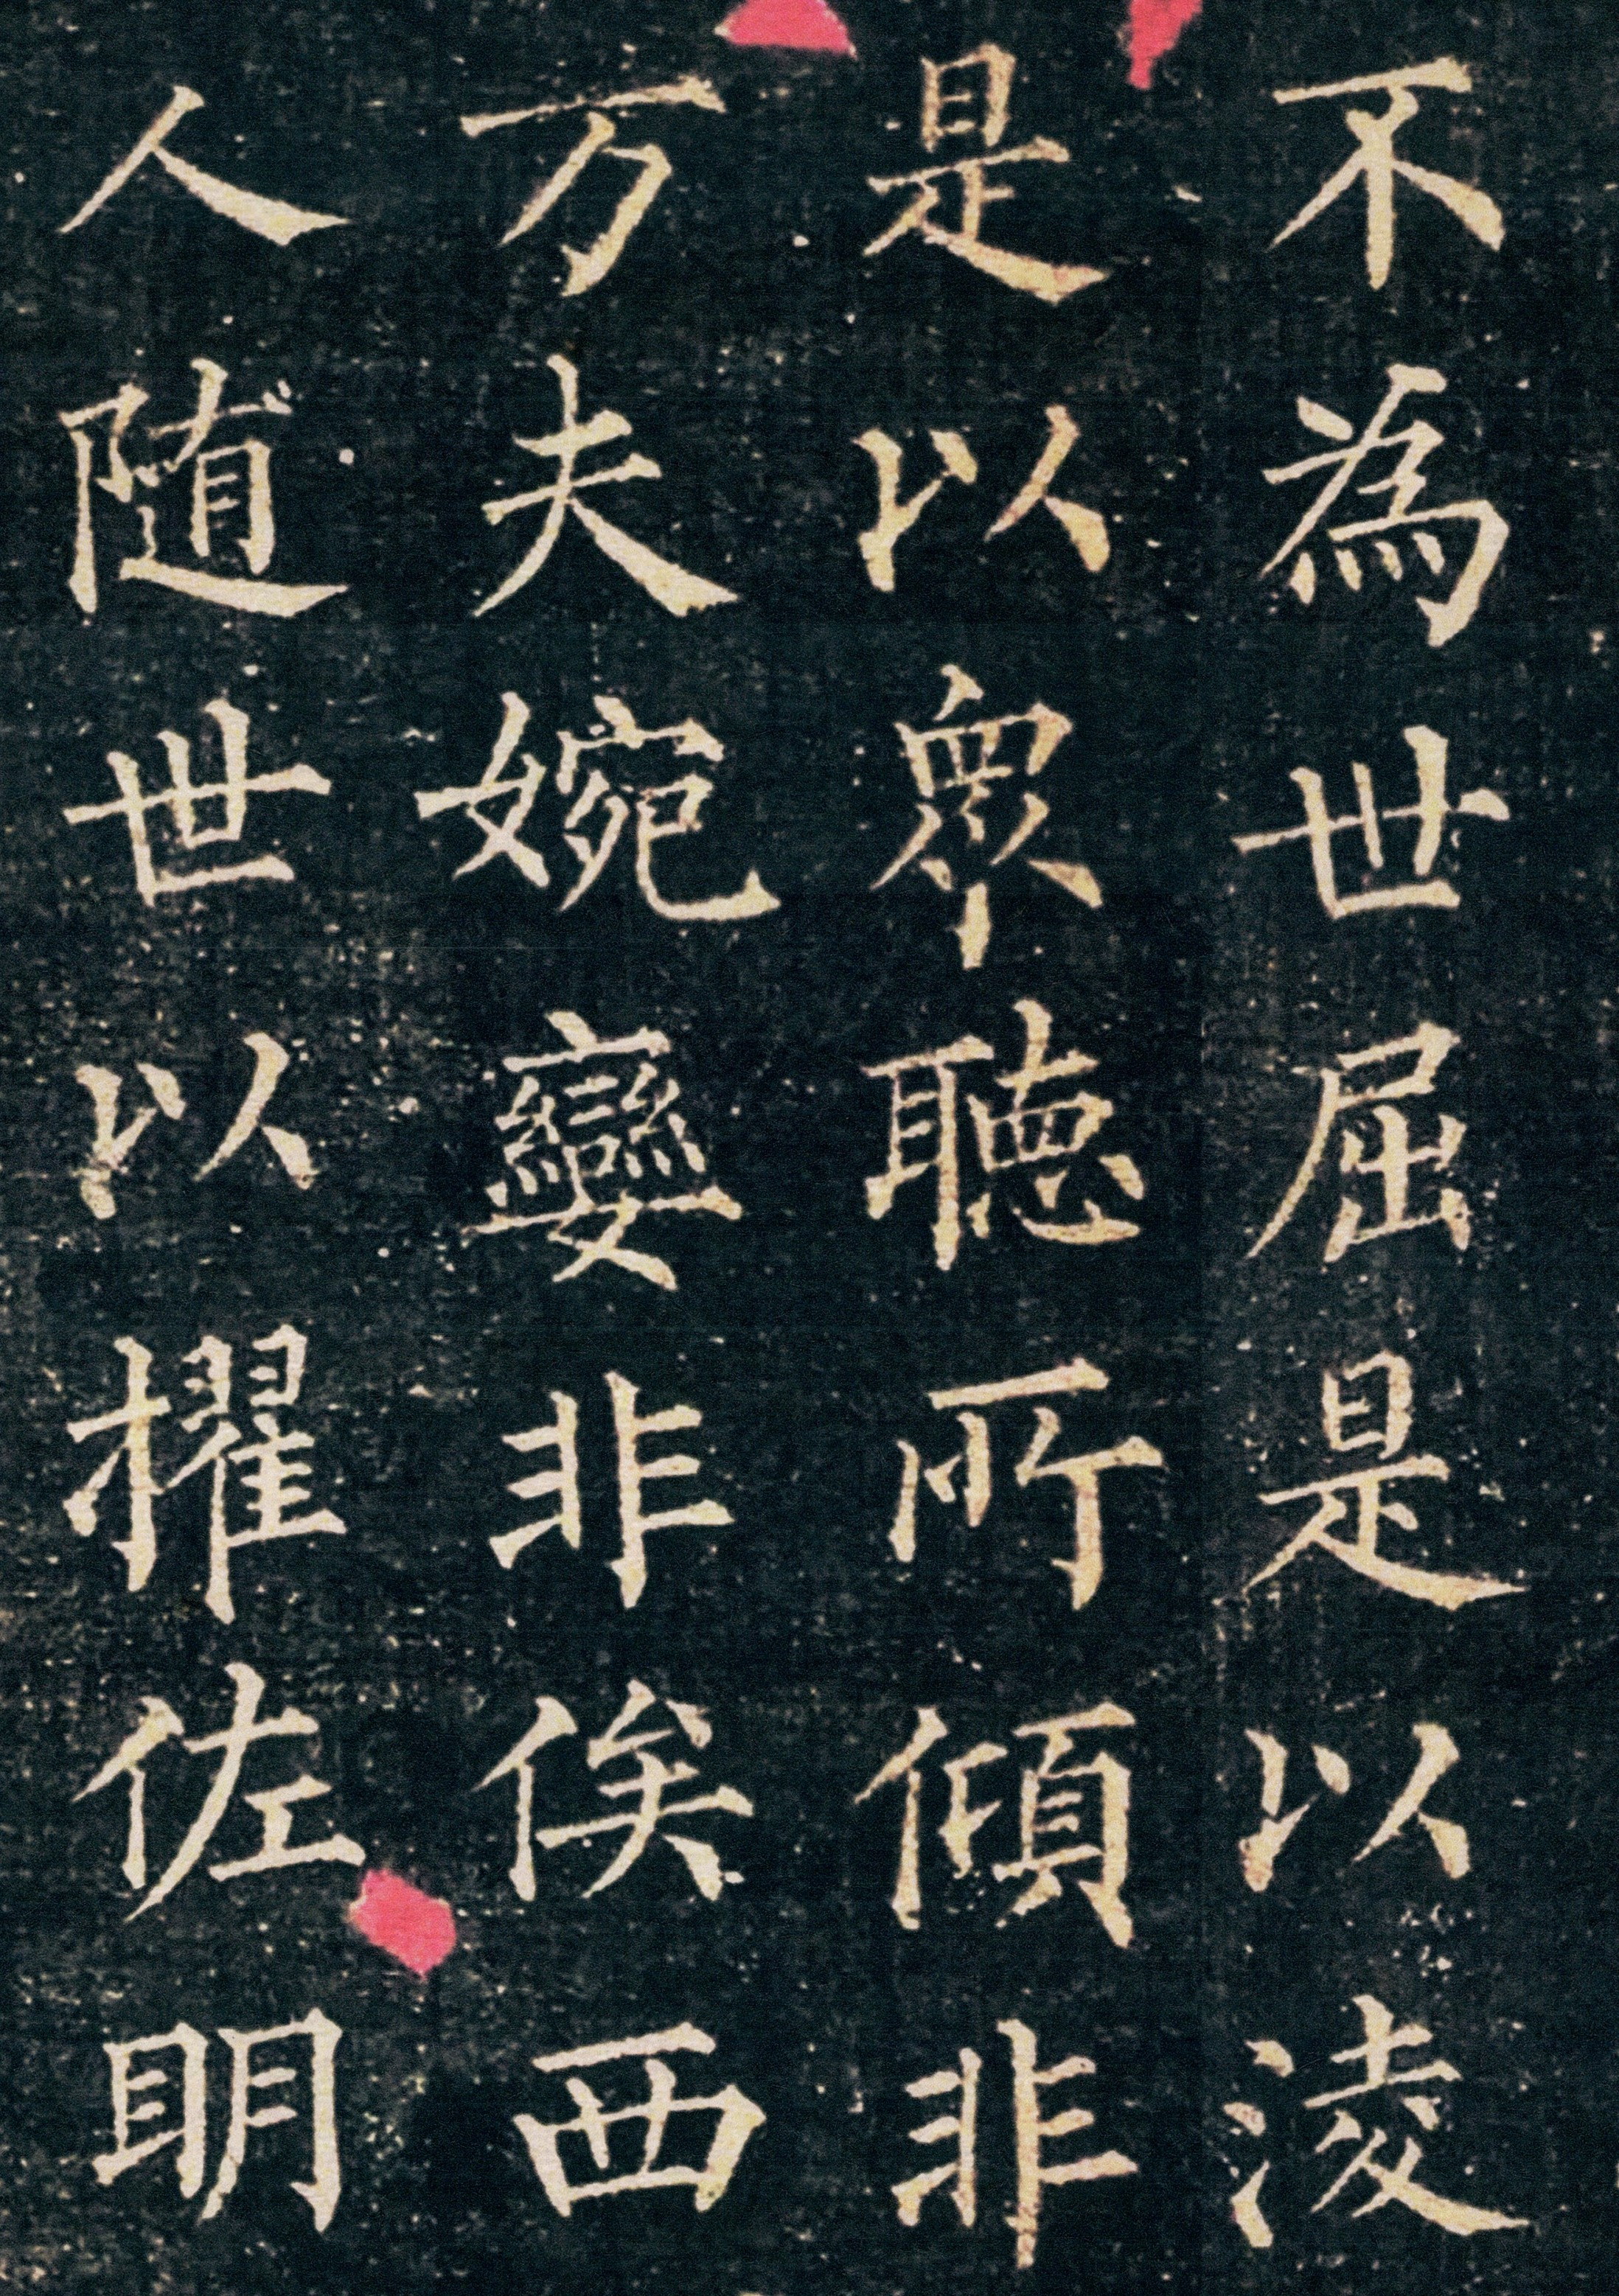 不為世屈是以淩
是以眾聽所傾非
万夫婉孌非俟西
人随世以擢佐明